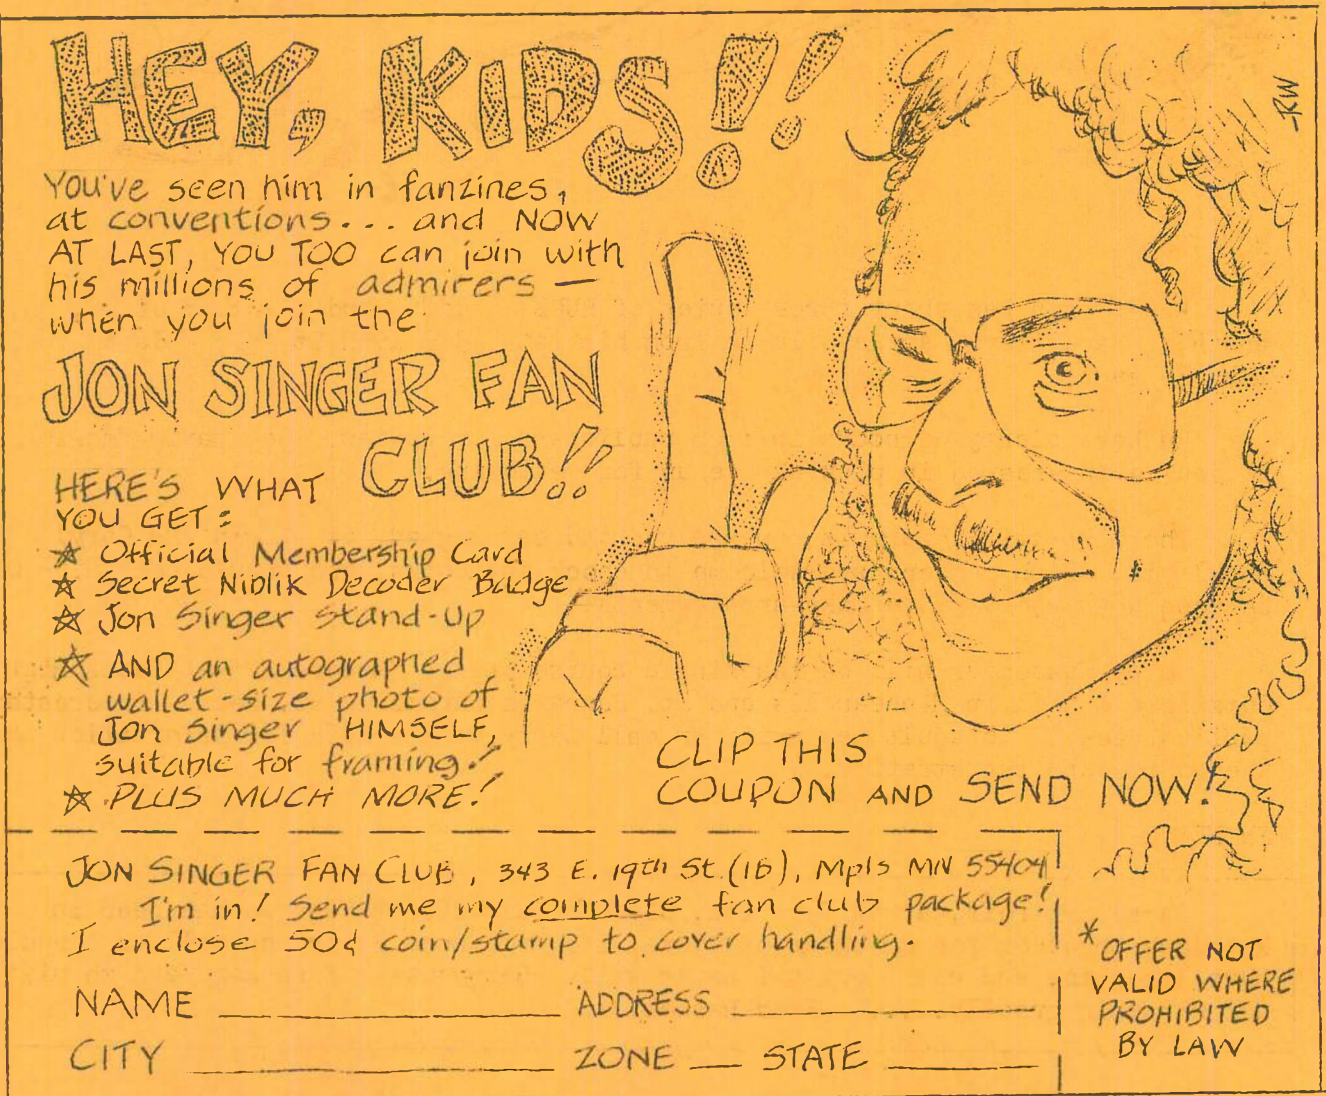 HEY, KIDS!!
-RW
YOU'VE seen him in fanzines,
at conventions... and NOW
AT LAST, YOU TOO can join with
his millions of admirers —
when you join the
JON SINGER FAN
CLUB!!
HERE'S WHAT
YOU GET:
☆ Official Membership Card
☆ Secret Niblik Decoder Badge
☆ Jon Singer stand-up
☆ AND an autographed
wallet-size photo of
Jon Singer HIMSELF,
suitable for framing!
☆ PLUS MUCH MORE!
CLIP THIS
COUPON AND SEND NOW!
JON SINGER FAN CLUB, 343 E. 19th St. (1B), Mpls MN 55404
I'm in! Send me my complete fan club package!
I enclose 50¢ coin/stamp to cover handling.
NAME ____ ADDRESS ____
CITY ____ ZONE __ STATE ____
*OFFER NOT
VALID WHERE
PROHIBITED
BY LAW